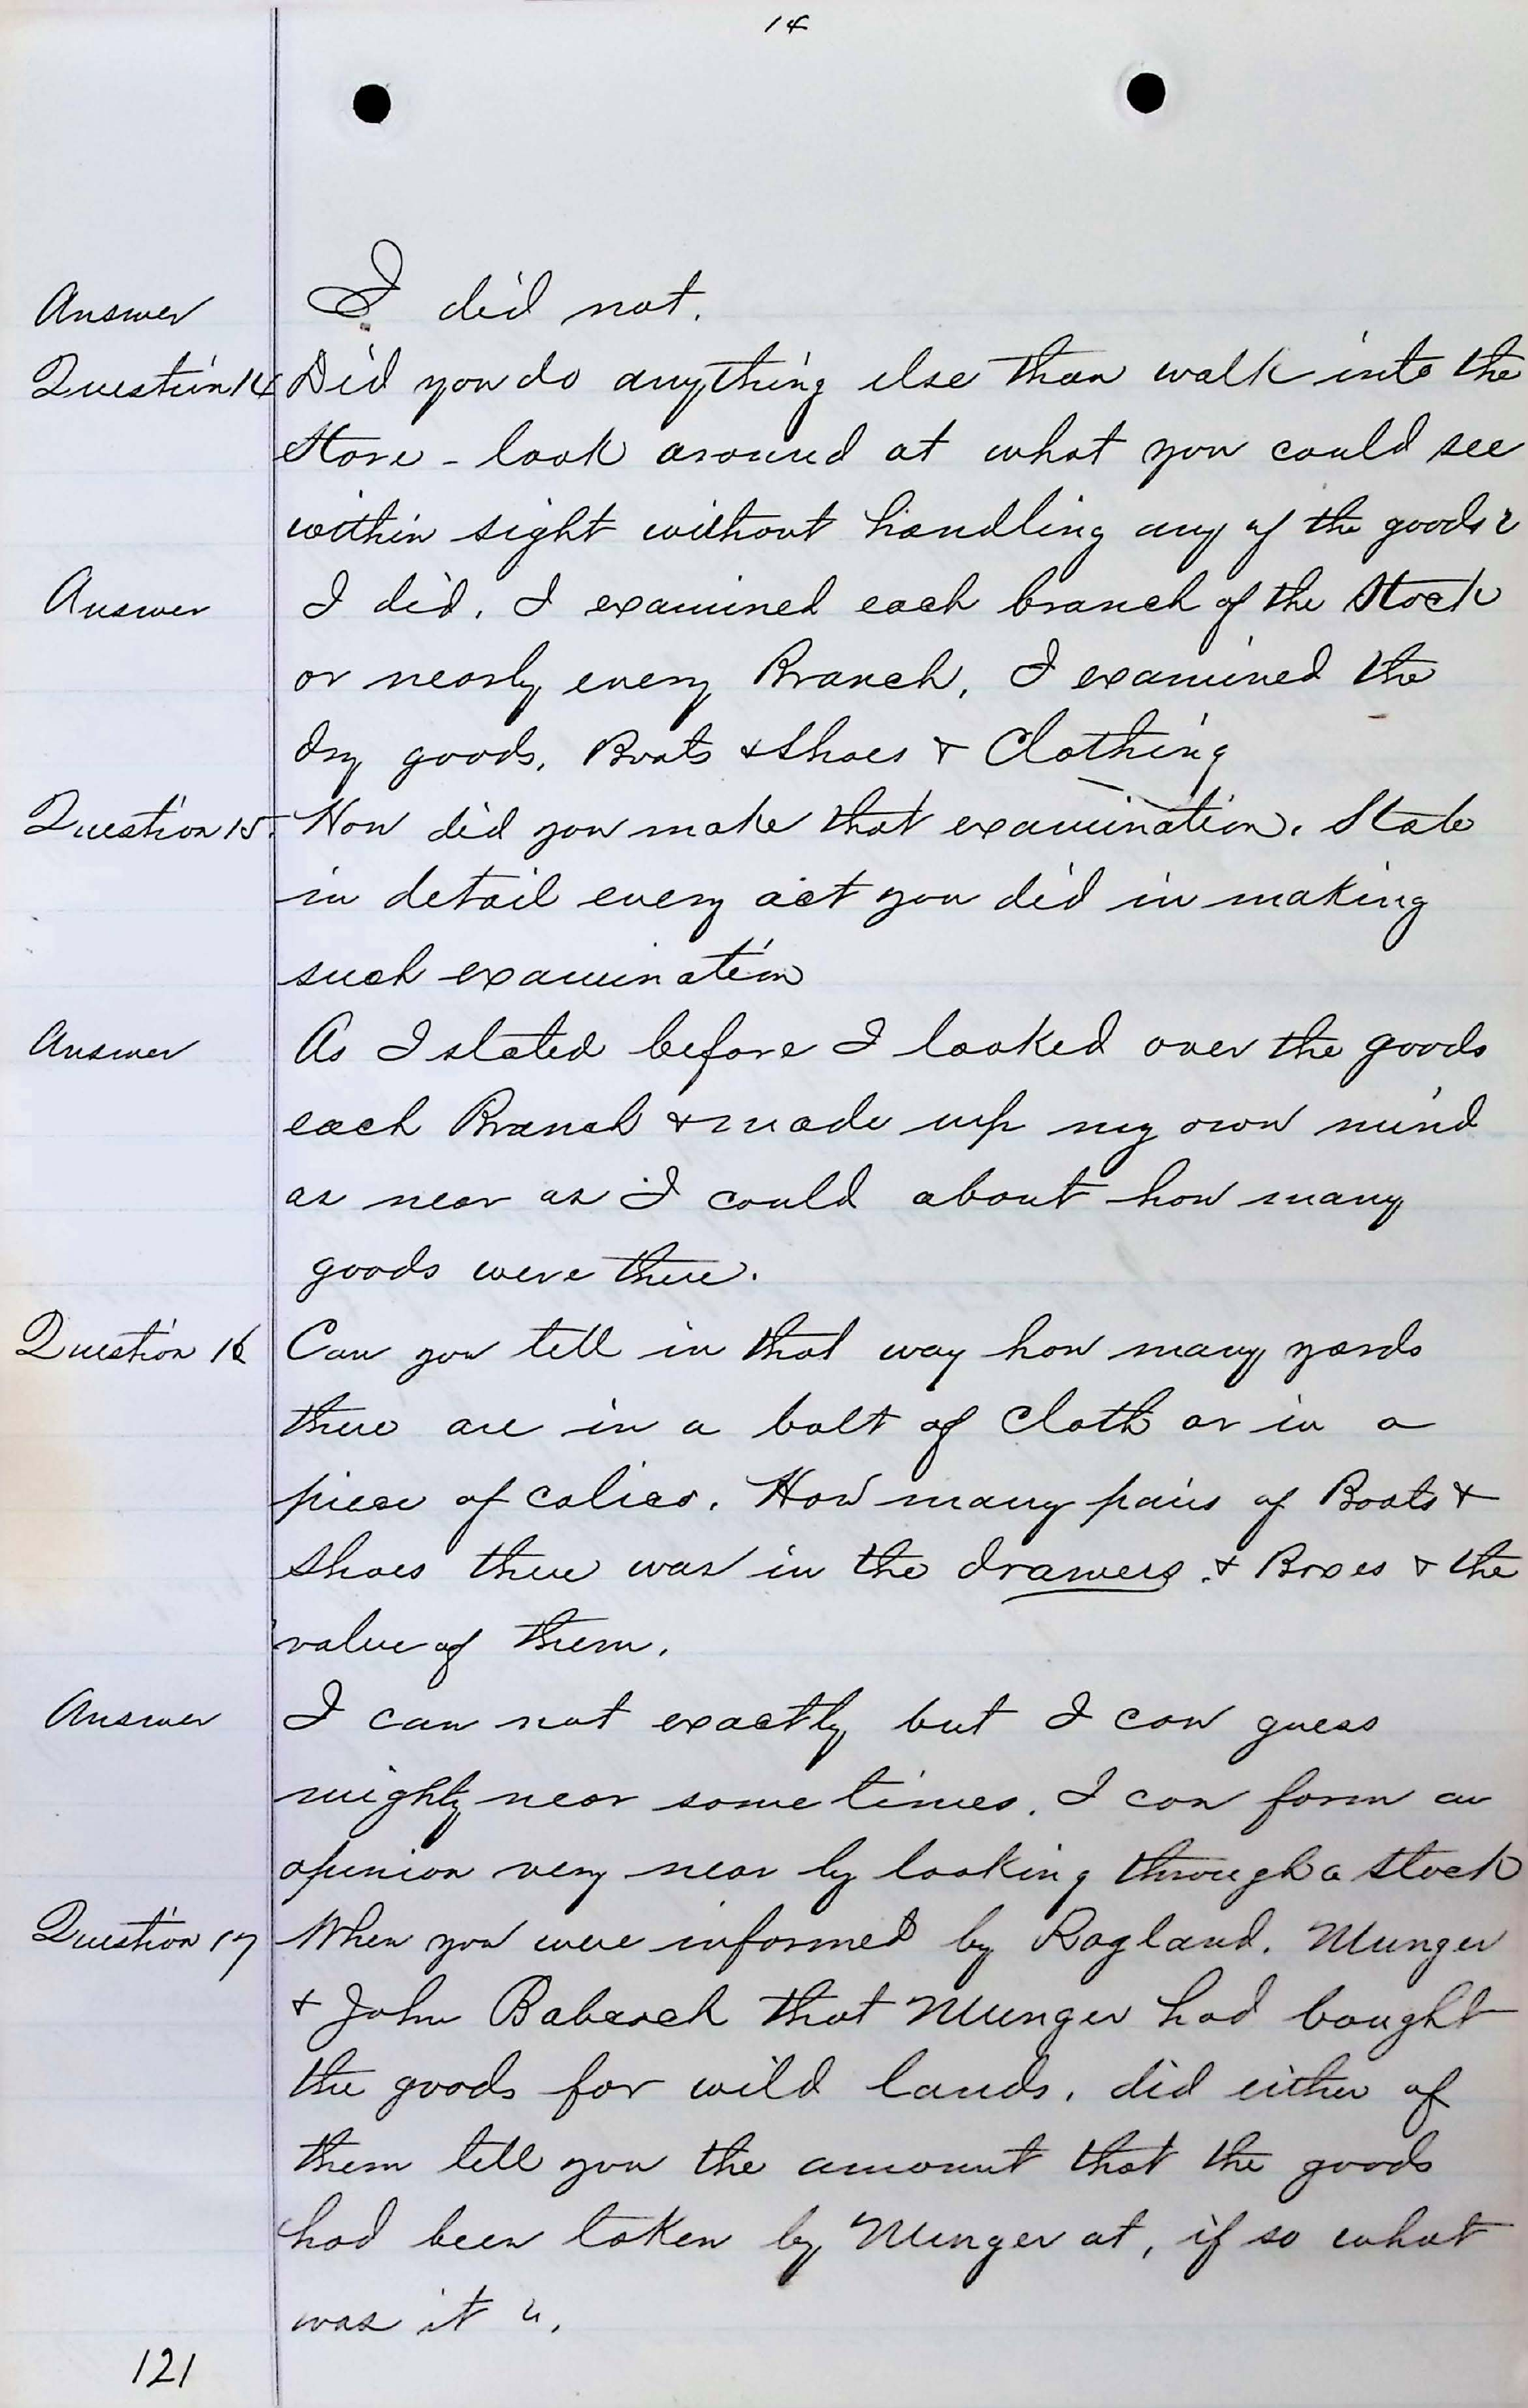 14
Answer I did not.
Question 14 Did you do anything else than walk into the
Store - look around at what you could see
within sight without handling any of the goods?
Answer I did. I examined each branch of the Stock
or nearly every Branch, I examined the
dry goods. Boots & Shoes & Clothing
Question 15. How did you make that examination. State
in detail every act you did in making
such examination
Answer As I stated before I looked over the goods
each Branch & made up my own mind
as near as I could about how many
goods were there.
Question 16 Can you tell in that way how many yards
there are in a bolt of Cloth or in a
piece of calico. How many pairs of Boots &
Shoes there was in the drawers & Boxes & the
value of them.
Answer I can not exactly but I can guess
mighty near some times. I can form an
opinion very near by looking through a Stock
Question 17 When you were informed by Ragland. Munger
& John Babcock that Munger had bought
the goods for wild lands. did either of
them tell you the amount that the goods
had been taken by Munger at, if so what
was it?
121